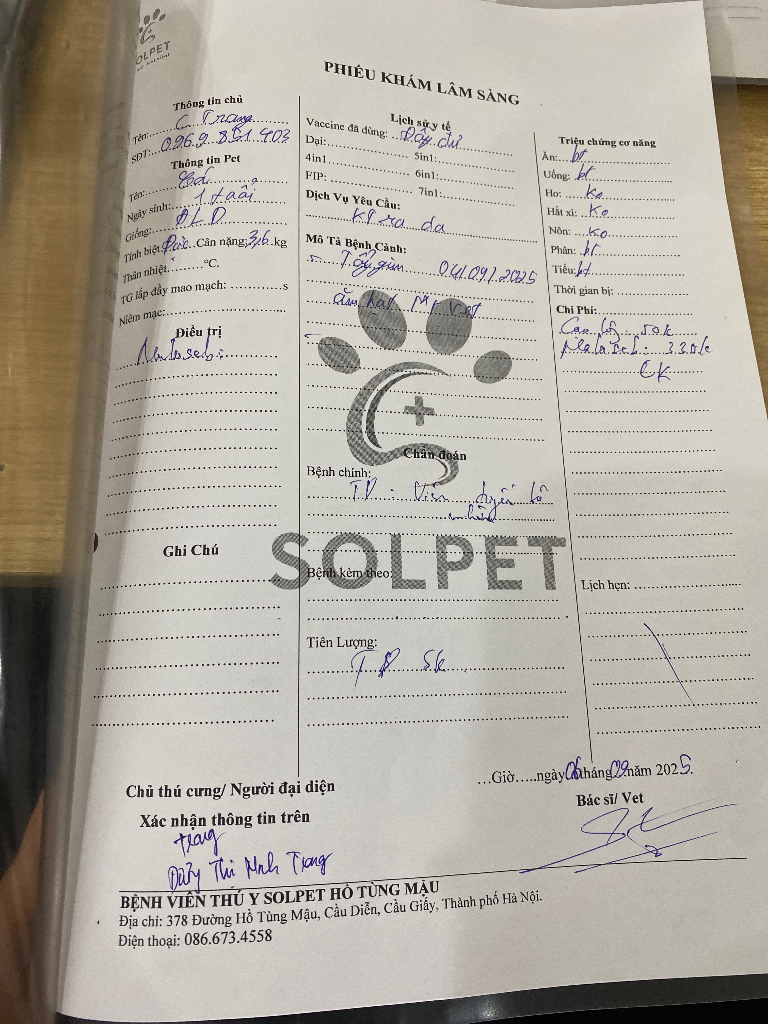 SOLPET
PHIẾU KHÁM LÂM SÀNG
Thông tin chủ
Tên: C Trang
SĐT: 0969.851.403
Thông tin Pet
Tên:
Ngày sinh: 1 tuổi
Giống: ALD
Tính biệt: Đực Cân nặng: 3,6 kg
Thân nhiệt: °C.
TG lấp đầy mao mạch: s
Niêm mạc:
Điều trị
Ghi Chú
Lịch sử y tế
Vaccine đã dùng: Đầy đủ
Dại: 5in1:
4in1 6in1:
FIP: 7in1:
Dịch Vụ Yêu Cầu:
KT ra da
Mô Tả Bệnh Cảnh:
- Tẩy giun 04/09/2025
ăn hạt
-
Chẩn đoán
Bệnh chính:
TD: Viêm tuyến bã
nhờn
SOLPET
Bệnh kèm theo:
Tiên Lượng:
TD SK
Triệu chứng cơ năng
Ăn: bt
Uống: bt
Ho: Ko
Hắt xì: Ko
Nôn: Ko
Phân: bt
Tiểu: bt
Thời gian bị:
Chi Phí:
50k
330k
CK
Lịch hẹn:
...Giờ.....ngày 06 tháng 09 năm 2025.
Chủ thú cưng/ Người đại diện
Bác sĩ/ Vet
Xác nhận thông tin trên
Trang
Thị Minh Trang
BỆNH VIỆN THÚ Y SOLPET HỒ TÙNG MẬU
Địa chỉ: 378 Đường Hồ Tùng Mậu, Cầu Diễn, Cầu Giấy, Thành phố Hà Nội.
Điện thoại: 086.673.4558